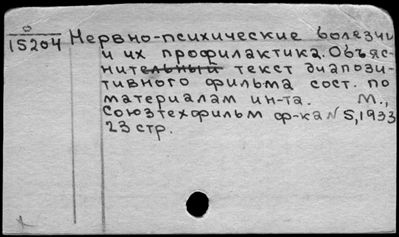 О
15204 Нервно-психические болезни
и их профилактика. Объяс-
нительный текст диапози-
тивного фильма сост. по
материалам ин-та. М.,
Союзтехфильм ф-ка N 5, 1933
23 стр.